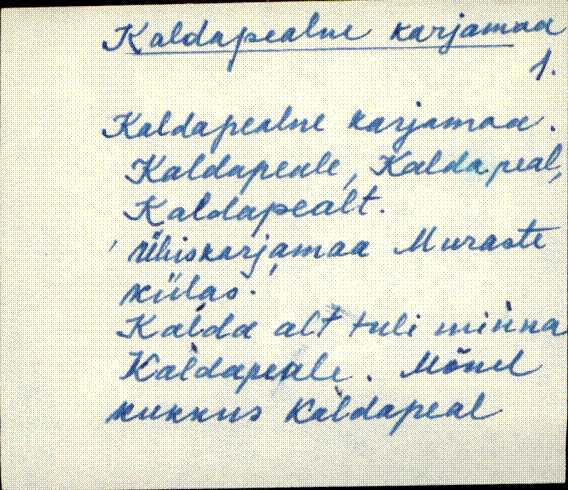 Kaldapealne karjamaa
1.
Kaldapealne karjamaa.
Kaldapeale, Kaldapeal,
Kaldapealt.
'Ühiskarjamaa Muraste
külas.'
Kalda alt tuli minna
Kaldapeale. Mõnel
kukkus Kaldapeal